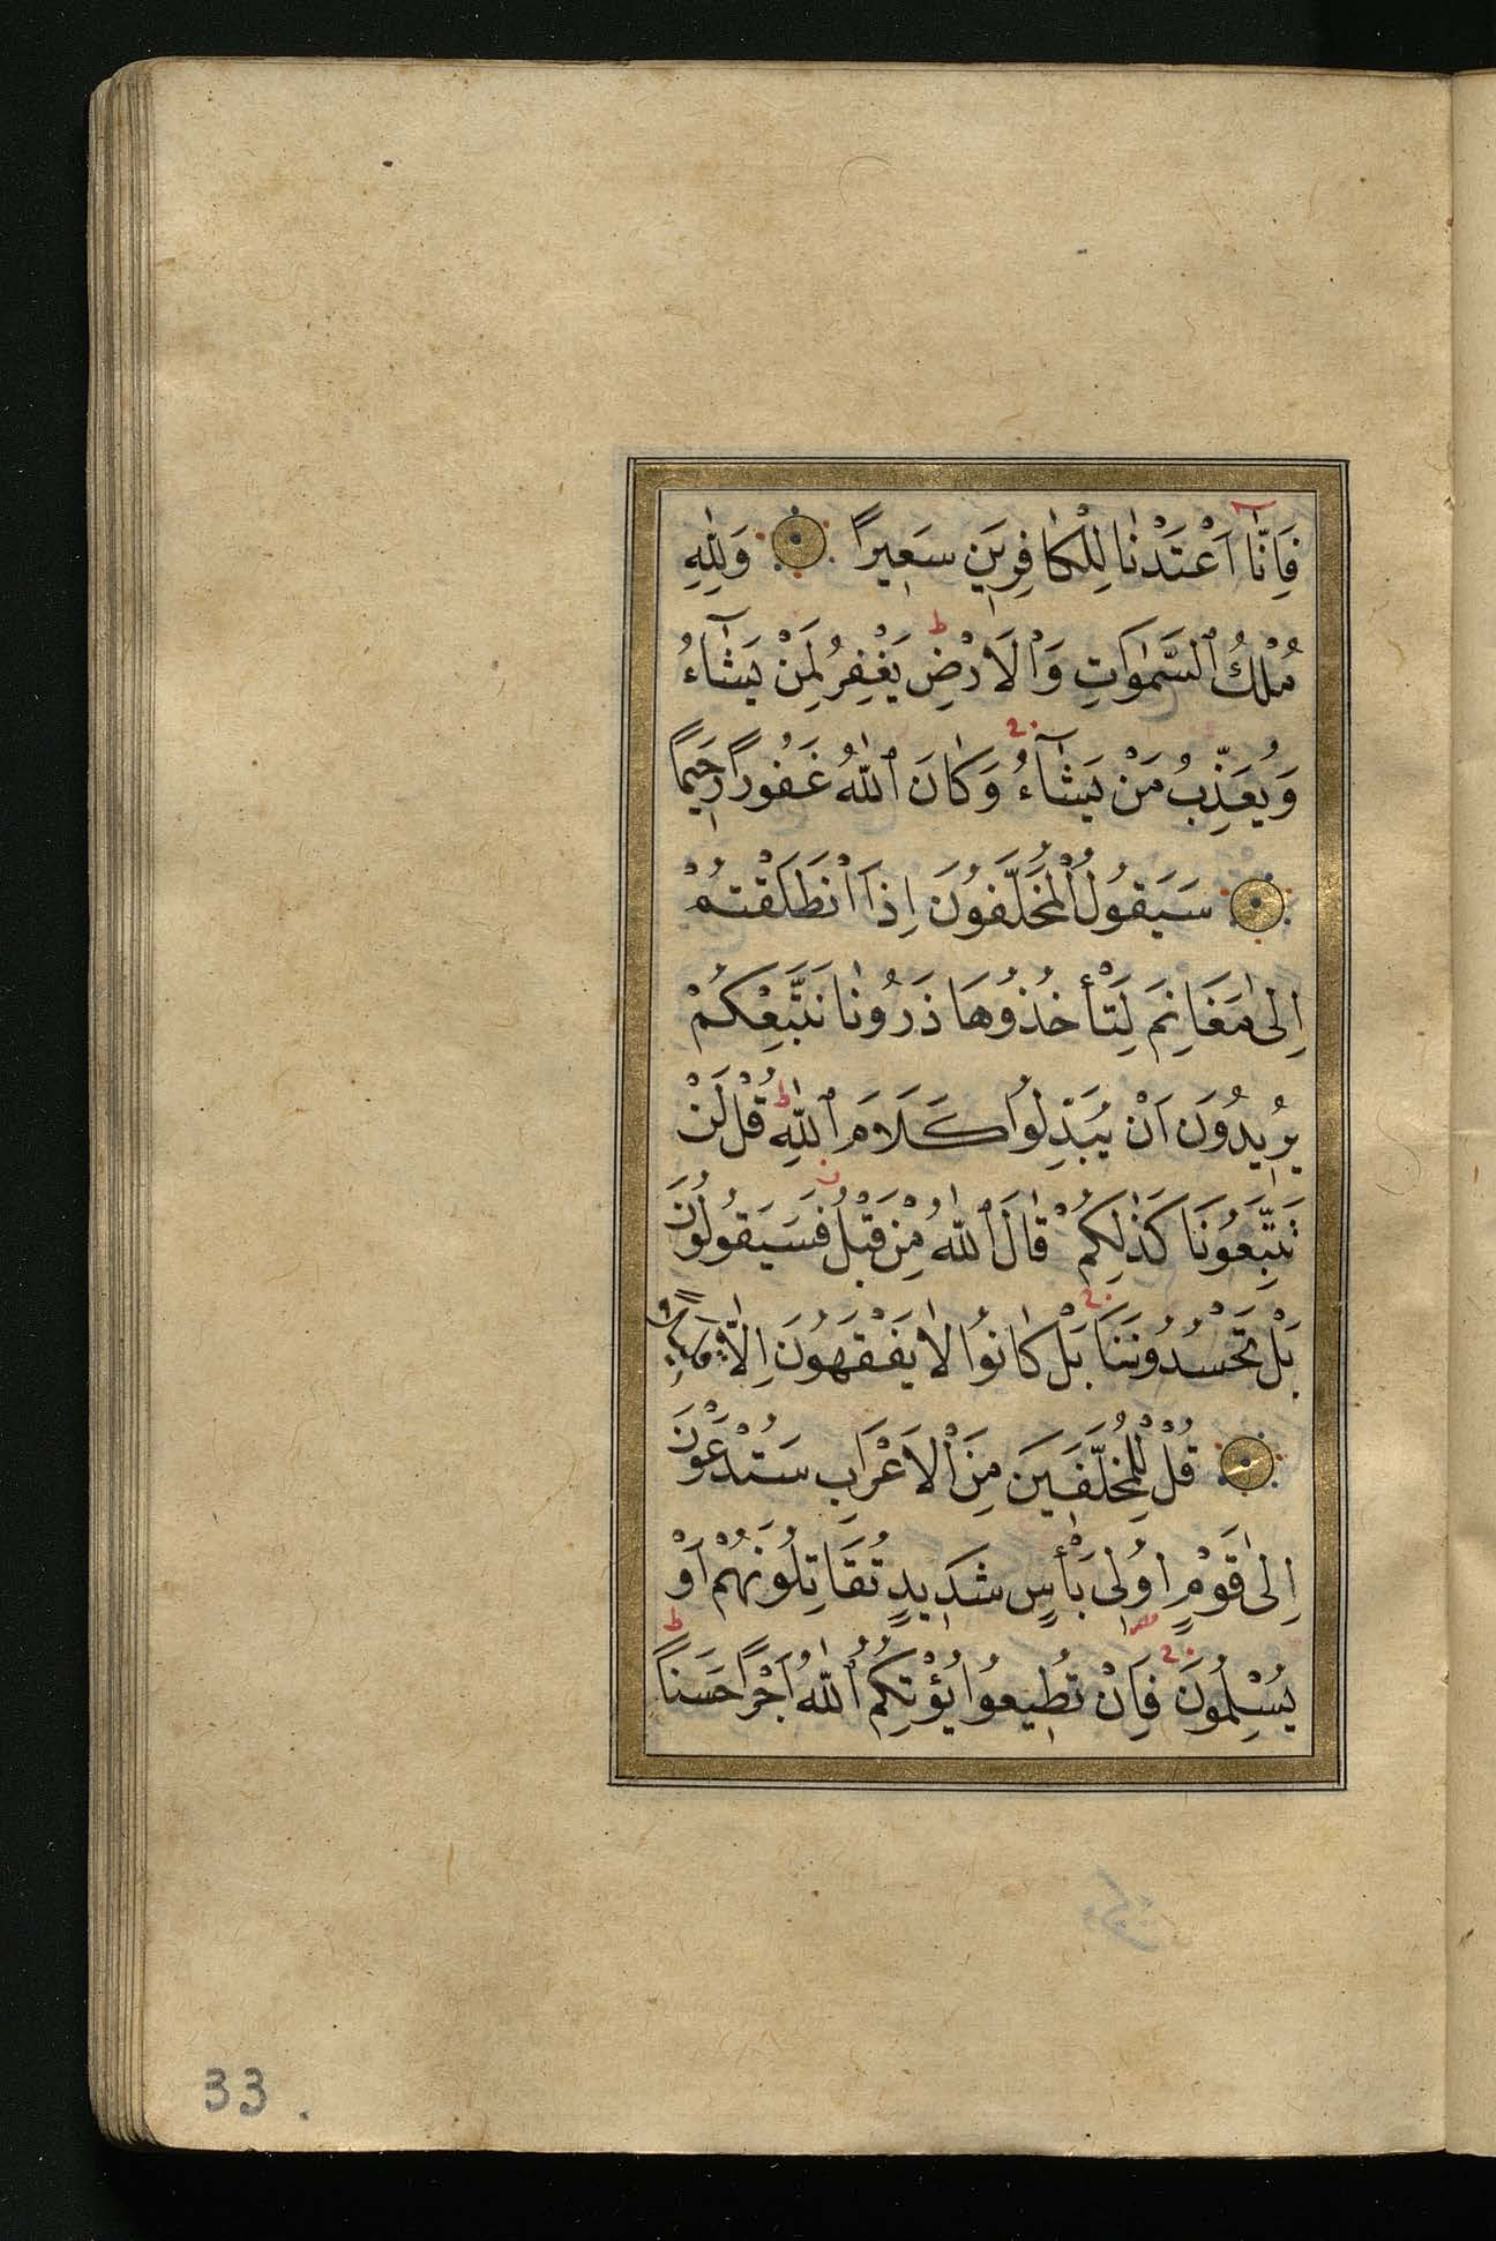 فَاِنَّٓا اَعْتَدْنَا لِلْكَافِرٖينَ سَعٖيرًا وَلِلّٰهِ
مُلْكُ ٱلسَّمٰوَاتِ وَٱلْاَرْضِ ط يَغْفِرُ لِمَنْ يَشَٓاءُ
وَيُعَذِّبُ مَنْ يَشَٓاءُ وَكَانَ ٱللّٰهُ غَفُورًا رَحٖيمًا
سَيَقُولُ ٱلْمُخَلَّفُونَ اِذَا ٱنْطَلَقْتُمْ
اِلٰى مَغَانِمَ لِتَأْخُذُوهَا ذَرُونَا نَتَّبِعْكُمْ
يُرٖيدُونَ اَنْ يُبَدِّلُوا كَلَامَ ٱللّٰهِ ط قُلْ لَنْ
تَتَّبِعُونَا كَذٰلِكُمْ قَالَ ٱللّٰهُ مِنْ قَبْلُ فَسَيَقُولُونَ
بَلْ تَحْسُدُونَنَا بَلْ كَانُوا لَا يَفْقَهُونَ اِلَّا قَلٖيلًا
قُلْ لِلْمُخَلَّفٖينَ مِنَ ٱلْاَعْرَابِ سَتُدْعَوْنَ
اِلٰى قَوْمٍ اُولٖى بَأْسٍ شَدٖيدٍ تُقَاتِلُونَهُمْ اَوْ
يُسْلِمُونَ فَاِنْ تُطٖيعُوا يُؤْتِكُمُ ٱللّٰهُ اَجْرًا حَسَنًا ط
33